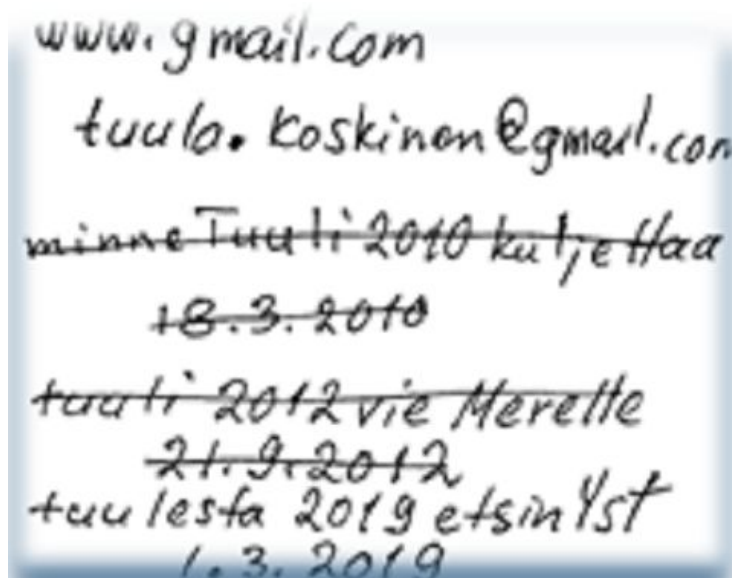 www.gmail.com
tuula.koskinen@gmail.com
minne Tuuli 2010 kuljettaa
18.3.2010
tuuli 2012 vie Merelle
21.9.2012
tuulesta 2019 etsin Yst
1.3.2019